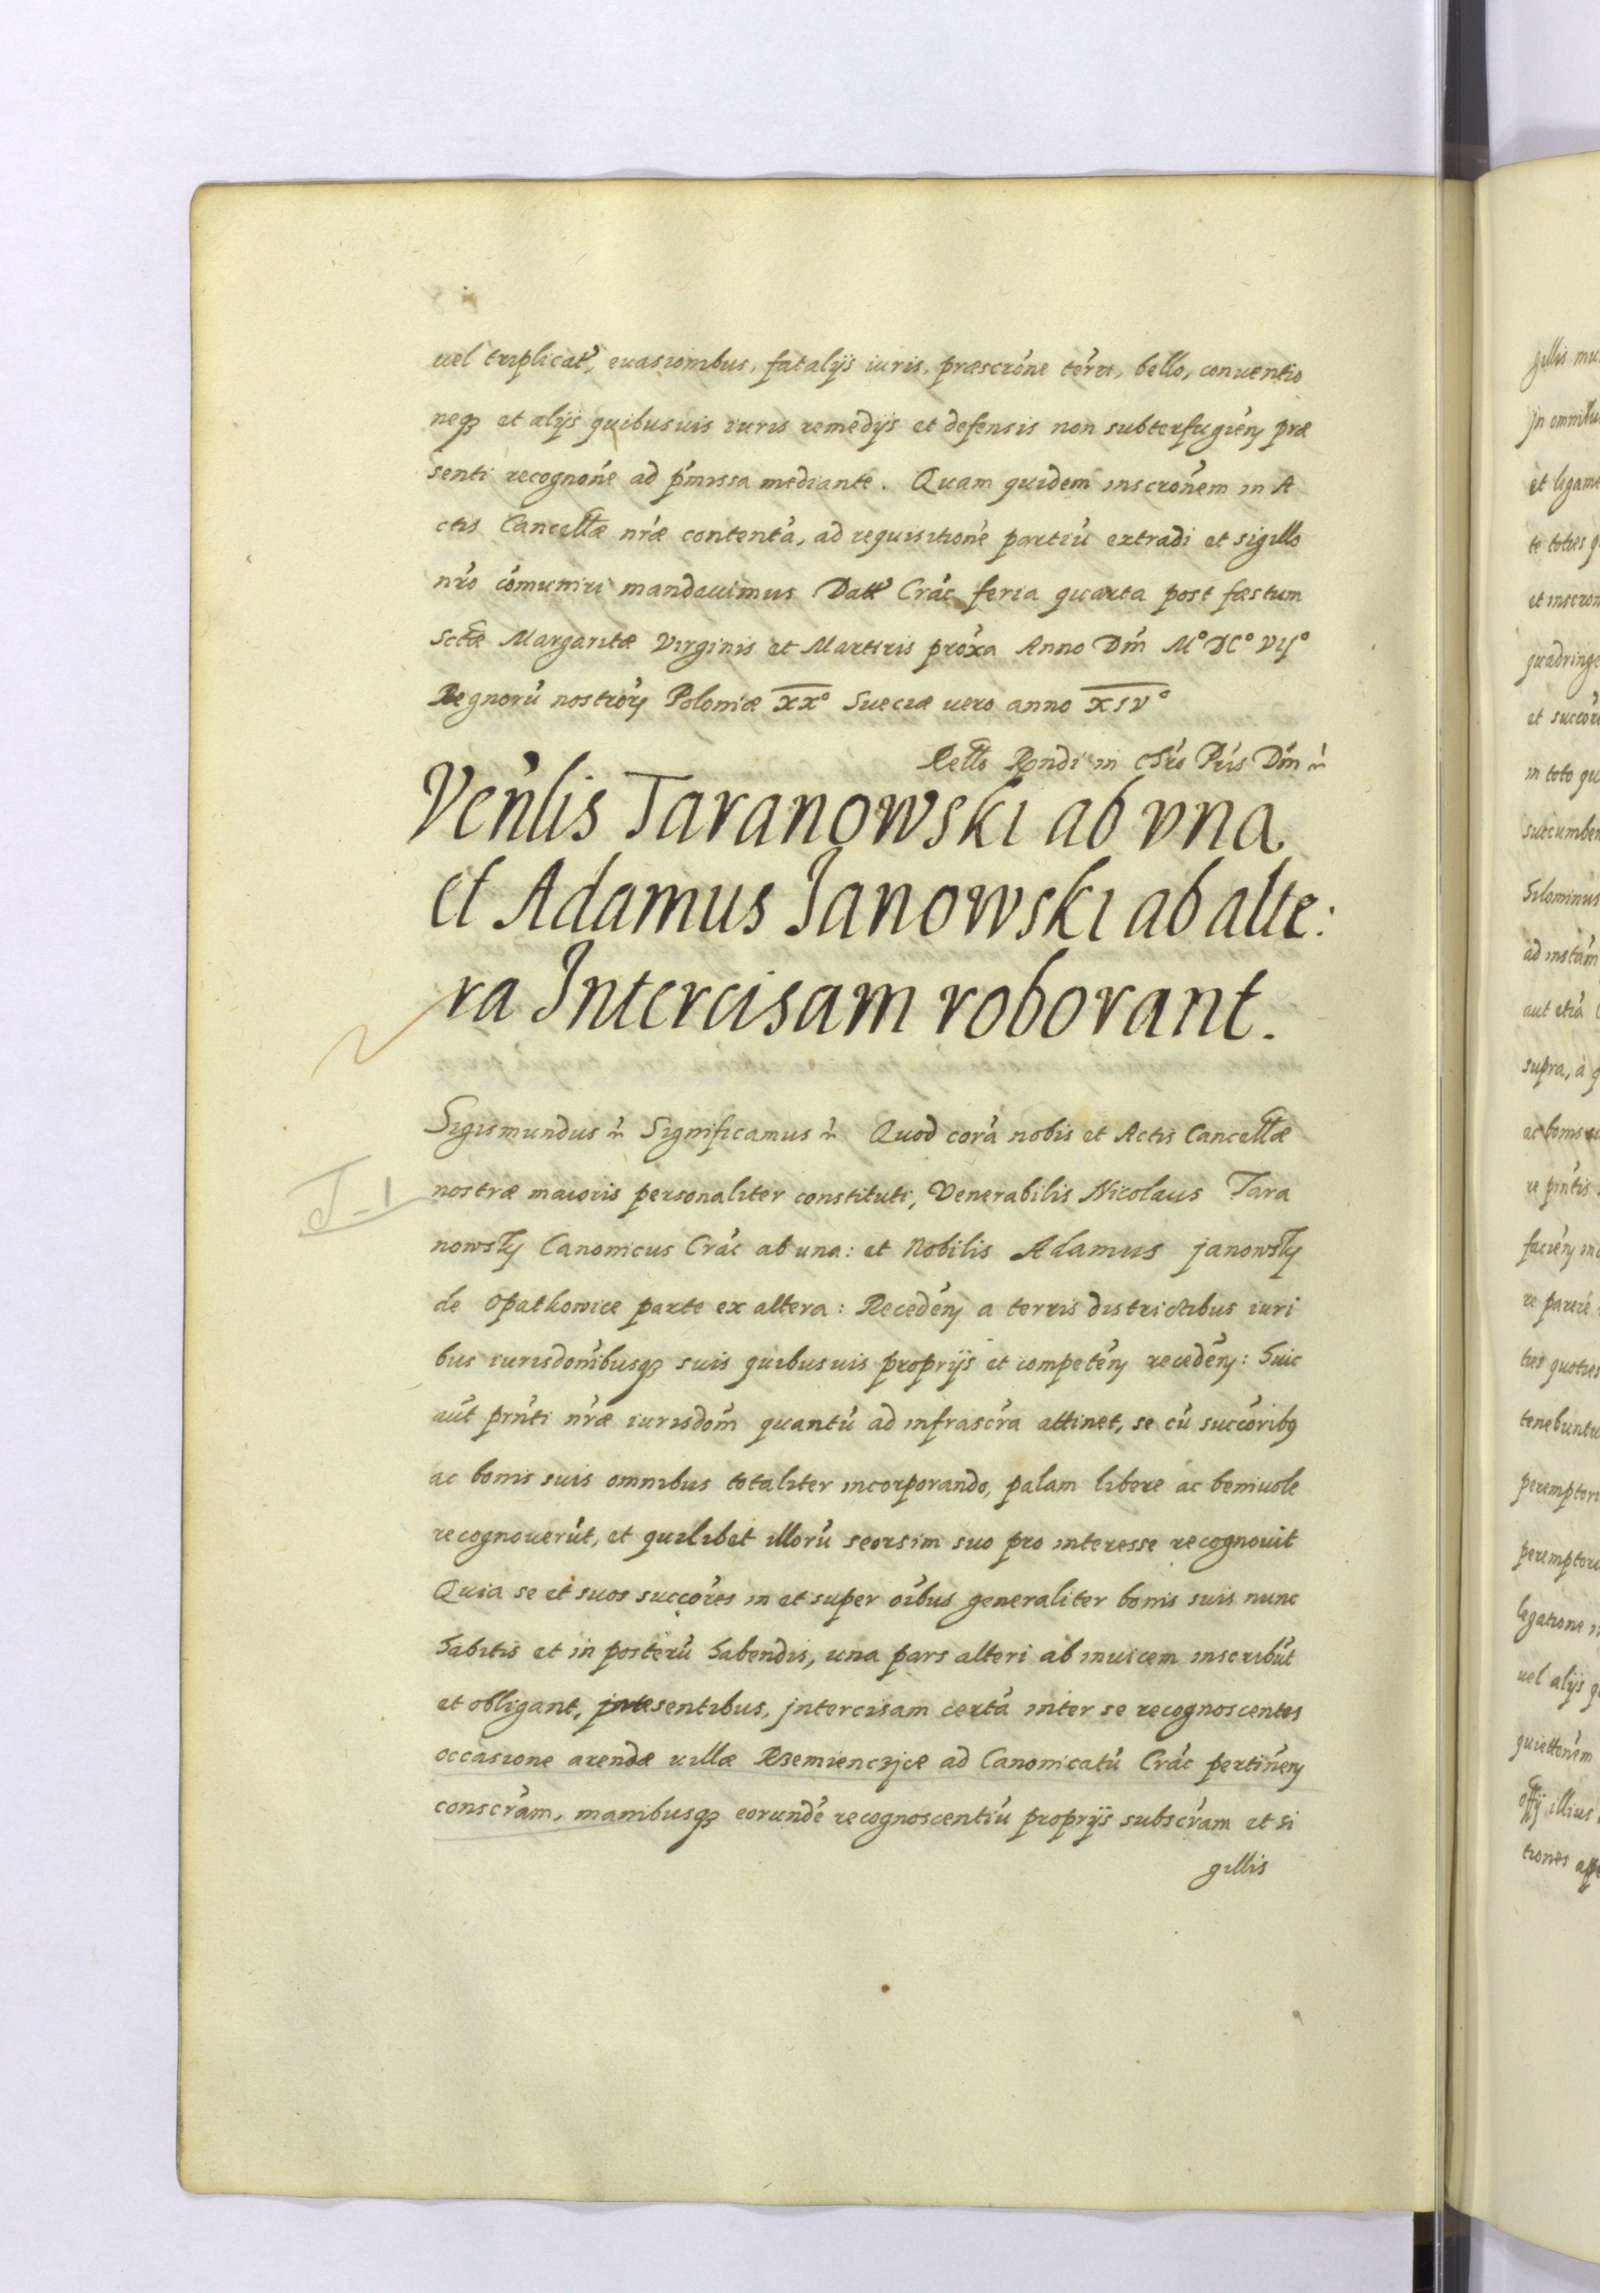 vel triplicat', euasionibus, fatalijs iuris, præscro'ne te'rri, bello, conuentio
neq3 et alijs quibusuis iuris remedijs et defensis non subterfugie'n præ
senti recogno'ne ad p'missa mediante. Quam quidem inscro'nem in A
ctis Cancellæ n'ræ contenta', ad requisitione' partiu' extradi et sigillo
n'ro co'muniri mandauimus Datt' Cra'c feria quarta post fæstum
Sctæ Margaritæ Virginis et Martiris pro'xa Anno D'm M° DC° VIJ°
Regnoru' nostror' Poloniæ XX° Sueciæ uero anno XIV°
Rello Rndi in Chr'o P'ris D'm
Ven'lis Taranowski ab vna
et Adamus Janowski ab alte:
ra Intercisam roborant.
J-1
Sigismundus Significamus Quod cora' nobis et Actis Cancellæ
nostræ maioris personaliter constituti, Venerabilis Nicolaus Tara
nowsky Canonicus Cra'c ab una: et Nobilis Adamus Janowsky
de Opatkowice parte ex altera: Recede'n a terris districtibus iuri
bus iurisdo'nibusq3 suis quibusuis proprijs et compete'n recede'n: huic
au't pr'nti n'ræ iurisdo'm quantu' ad infrascr'a attinet, se cu' succoribq
ac bonis suis omnibus totaliter incorporando, palam libere ac beniuole
recognoueru't, et quilibet illoru' seorsim suo pro interesse recognouit
Quia se et suos succo'res in et super o'ibus generaliter bonis suis nunc
habitis et in posteru' habendis, una pars alteri ab inuicem inscribu't
et obligant, præsentibus, jntercisam certa' inter se recognoscentes
occasione arendæ uillæ Rzemienczjce ad Canonicatu' Cra'c pertine'n
conscr'am, manibusq3 eorunde' recognoscentiu' proprijs subscr'am et si
gillis